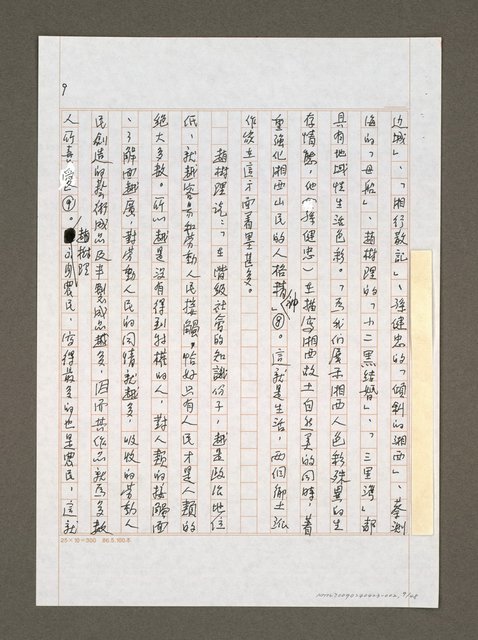 9
边城」、「湘行散記」、孫健忠的「傾斜的湘西」、蔡测
海的「母船」、趙樹理的「小二黑結婚」、「三里灣」都
具有地域性生活色彩。「為我們展示湘西人色彩殊異的生
存情態，他（孫健忠）在描寫湘西故土自然美的同時，著
重強化湘西山民的人格精神」⑧。這就是生活，两個鄉土
作家在這方面着墨甚多。
趙樹理說：「在階級社會的知識份子，越是政治地位
低，就越容易和勞動人民接觸。恰好只有人民才是人類的
絕大多數。所以越是沒有得到特權的人，對人類的接觸面
、了解面越廣，對勞動人民的同情就越多，吸收的勞動人
民創造的藝術成品及半製成品越多，因而其作品就為多數
人所喜愛⑨。趙樹理 農民，寫得最多的也是農民，這就
25×10=300 86.5.100本